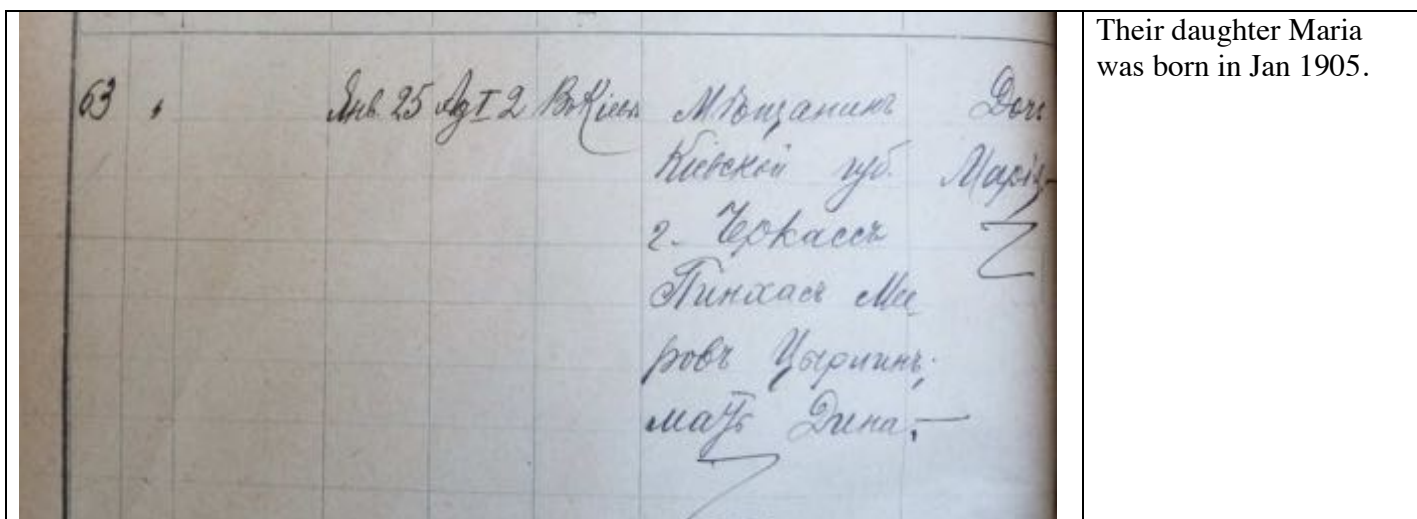 63 " Янв. 25 Ад I 2 Въ Кіевѣ Мѣщанинъ Дочь
Кіевской губ. Марія
г. Черкассъ
Пинхасъ Ме
ровъ Цырлинъ;
мать Дина,—
Their daughter Maria
was born in Jan 1905.